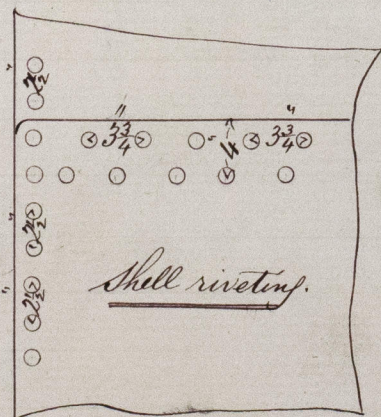 2½
3¾ 4 3¾
2½
2½
Shell riveting.